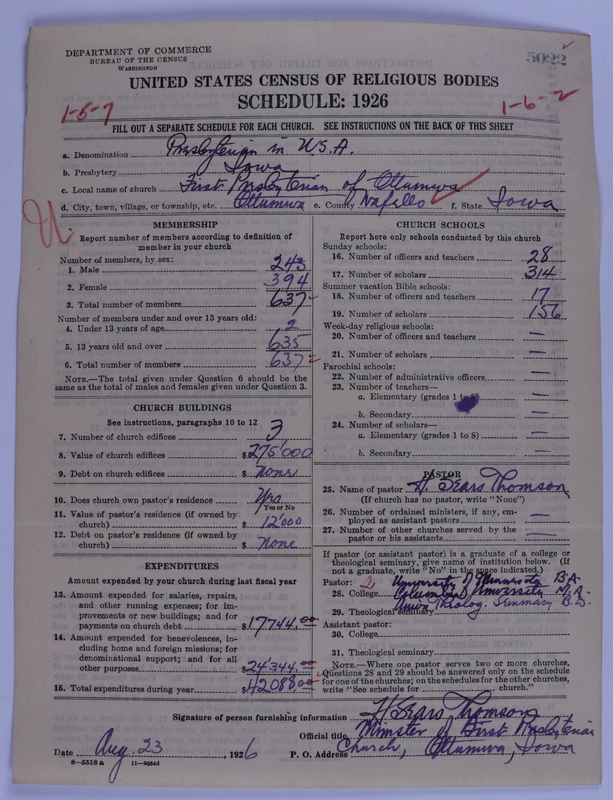 DEPARTMENT OF COMMERCE
BUREAU OF THE CENSUS
WASHINGTON
5022
UNITED STATES CENSUS OF RELIGIOUS BODIES
SCHEDULE: 1926
1-5-7
1-6-2
FILL OUT A SEPARATE SCHEDULE FOR EACH CHURCH. SEE INSTRUCTIONS ON THE BACK OF THIS SHEET
a. Denomination Presbyterian in U.S.A.
b. Presbytery Iowa
c. Local name of church First Presbyterian of Ottumwa
d. City, town, village, or township, etc. Ottumwa e. County Wapello f. State Iowa
MEMBERSHIP
Report number of members according to definition of member in your church
Number of members, by sex:
1. Male 243
2. Female 394
3. Total number of members 637
Number of members under and over 13 years old:
4. Under 13 years of age 2
5. 13 years old and over 635
6. Total number of members 637
NOTE.—The total given under Question 6 should be the same as the total of males and females given under Question 3.
CHURCH BUILDINGS
See instructions, paragraphs 10 to 12
7. Number of church edifices 3
8. Value of church edifices $275'000
9. Debt on church edifices $ None
10. Does church own pastor's residence Yes
Yes or No
11. Value of pastor's residence (if owned by church) $ 12'000
12. Debt on pastor's residence (if owned by church) $ None
EXPENDITURES
Amount expended by your church during last fiscal year
13. Amount expended for salaries, repairs, and other running expenses; for improvements or new buildings; and for payments on church debt $17744.00
14. Amount expended for benevolences, including home and foreign missions; for denominational support; and for all other purposes $24'344.00
15. Total expenditures during year $42088.00
CHURCH SCHOOLS
Report here only schools conducted by this church
Sunday schools:
16. Number of officers and teachers 28
17. Number of scholars 314
Summer vacation Bible schools:
18. Number of officers and teachers 17
19. Number of scholars 156
Week-day religious schools:
20. Number of officers and teachers —
21. Number of scholars —
Parochial schools:
22. Number of administrative officers —
23. Number of teachers—
a. Elementary (grades 1 to 8) —
b. Secondary —
24. Number of scholars—
a. Elementary (grades 1 to 8) —
b. Secondary —
PASTOR
25. Name of pastor H. Sears Thomson
(If church has no pastor, write "None")
26. Number of ordained ministers, if any, employed as assistant pastors —
27. Number of other churches served by the pastor or his assistants —
If pastor (or assistant pastor) is a graduate of a college or theological seminary, give name of institution below. (If not a graduate, write "No" in the space indicated.)
Pastor: 2 University of Minnesota B.A.
28. College Columbia University M.A.
29. Theological seminary Union Theolog. Seminary B.D.
Assistant pastor:
30. College
31. Theological seminary
NOTE.—Where one pastor serves two or more churches, Questions 28 and 29 should be answered only on the schedule for one of the churches; on the schedules for the other churches, write "See schedule for church."
Signature of person furnishing information H Sears Thomson
Official title Minister, First Presbyterian
Date Aug. 23, 1926 P. O. Address Church, Ottumwa, Iowa
8-5518 a